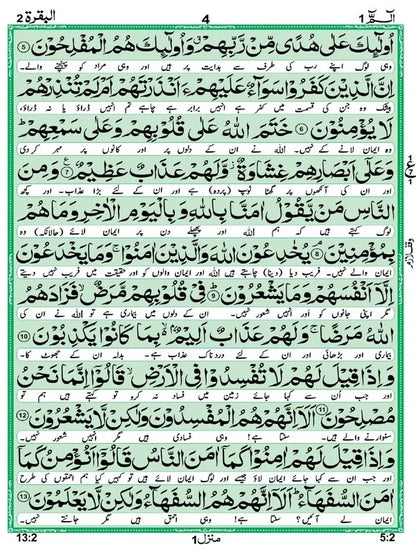 الٓمّٓ 1 4 البقرة 2
اُولٰٓئِكَ عَلٰى هُدًى مِّنْ رَّبِّهِمْ ۗ وَاُولٰٓئِكَ هُمُ الْمُفْلِحُوْنَ 5
وہی لوگ اپنے رب کی طرف سے ہدایت پر ہیں اور وہی مراد کو پہنچنے والے
اِنَّ الَّذِيْنَ كَفَرُوْا سَوَآءٌ عَلَيْهِمْ ءَاَنْذَرْتَهُمْ اَمْ لَمْ تُنْذِرْهُمْ
بیشک وہ جن کی قسمت میں کفر ہے انہیں برابر ہے چاہے تم انہیں ڈراؤ یا نہ ڈراؤ،
لَا يُؤْمِنُوْنَ 6 خَتَمَ اللّٰهُ عَلٰى قُلُوْبِهِمْ وَعَلٰى سَمْعِهِمْ ۗ
وہ ایمان لانے کے نہیں۔ اللہ نے ان کے دلوں پر اور کانوں پر مہر کردی
وَعَلٰٓى اَبْصَارِهِمْ غِشَاوَةٌ ۫ وَّلَهُمْ عَذَابٌ عَظِيْمٌ 7 وَمِنَ
اور ان کی آنکھوں پر گھٹا ٹوپ (پردہ) ہے اور ان کے لئے بڑا عذاب۔ اور کچھ
النَّاسِ مَنْ يَّقُوْلُ اٰمَنَّا بِاللّٰهِ وَبِالْيَوْمِ الْاٰخِرِ وَمَا هُمْ
لوگ کہتے ہیں کہ ہم اللہ اور پچھلے دن پر ایمان لائے (حالانکہ) وہ
بِمُؤْمِنِيْنَ 8 يُخٰدِعُوْنَ اللّٰهَ وَالَّذِيْنَ اٰمَنُوْا ۚ وَمَا يَخْدَعُوْنَ
ایمان والے نہیں۔ فریب دیا (دینا) چاہتے ہیں اللہ اور ایمان والوں کو اور حقیقت میں فریب نہیں دیتے
اِلَّآ اَنْفُسَهُمْ وَمَا يَشْعُرُوْنَ 9 فِيْ قُلُوْبِهِمْ مَّرَضٌ ۙ فَزَادَهُمُ
مگر اپنی جانوں کو اور انہیں شعور نہیں۔ ان کے دلوں میں بیماری ہے تو اللہ نے ان کی
اللّٰهُ مَرَضًا ۚ وَلَهُمْ عَذَابٌ اَلِيْمٌ ۢ بِمَا كَانُوْا يَكْذِبُوْنَ 10
بیماری اور بڑھائی اور ان کے لئے دردناک عذاب ہے۔ بدلہ ان کے جھوٹ کا۔
وَاِذَا قِيْلَ لَهُمْ لَا تُفْسِدُوْا فِي الْاَرْضِ ۙ قَالُوْٓا اِنَّمَا نَحْنُ
اور جب اُن سے کہا جائے زمین میں فساد نہ کرو تو کہتے ہیں ہم تو
مُصْلِحُوْنَ 11 اَلَآ اِنَّهُمْ هُمُ الْمُفْسِدُوْنَ وَلٰكِنْ لَّا يَشْعُرُوْنَ 12
سنوارنے والے ہیں۔ سنتا ہے! وہی فسادی ہیں مگر انہیں شعور نہیں۔
وَاِذَا قِيْلَ لَهُمْ اٰمِنُوْا كَمَآ اٰمَنَ النَّاسُ قَالُوْٓا اَنُؤْمِنُ كَمَآ
اور جب ان سے کہا جائے ایمان لاؤ جیسے اور لوگ ایمان لائے ہیں تو کہیں کیا ہم احمقوں کی طرح
اٰمَنَ السُّفَهَآءُ ۗ اَلَآ اِنَّهُمْ هُمُ السُّفَهَآءُ وَلٰكِنْ لَّا يَعْلَمُوْنَ 13
ایمان لے آئیں؟ سنتا ہے! وہی احمق ہیں مگر جانتے نہیں۔
13:2 منزل 1 5:2